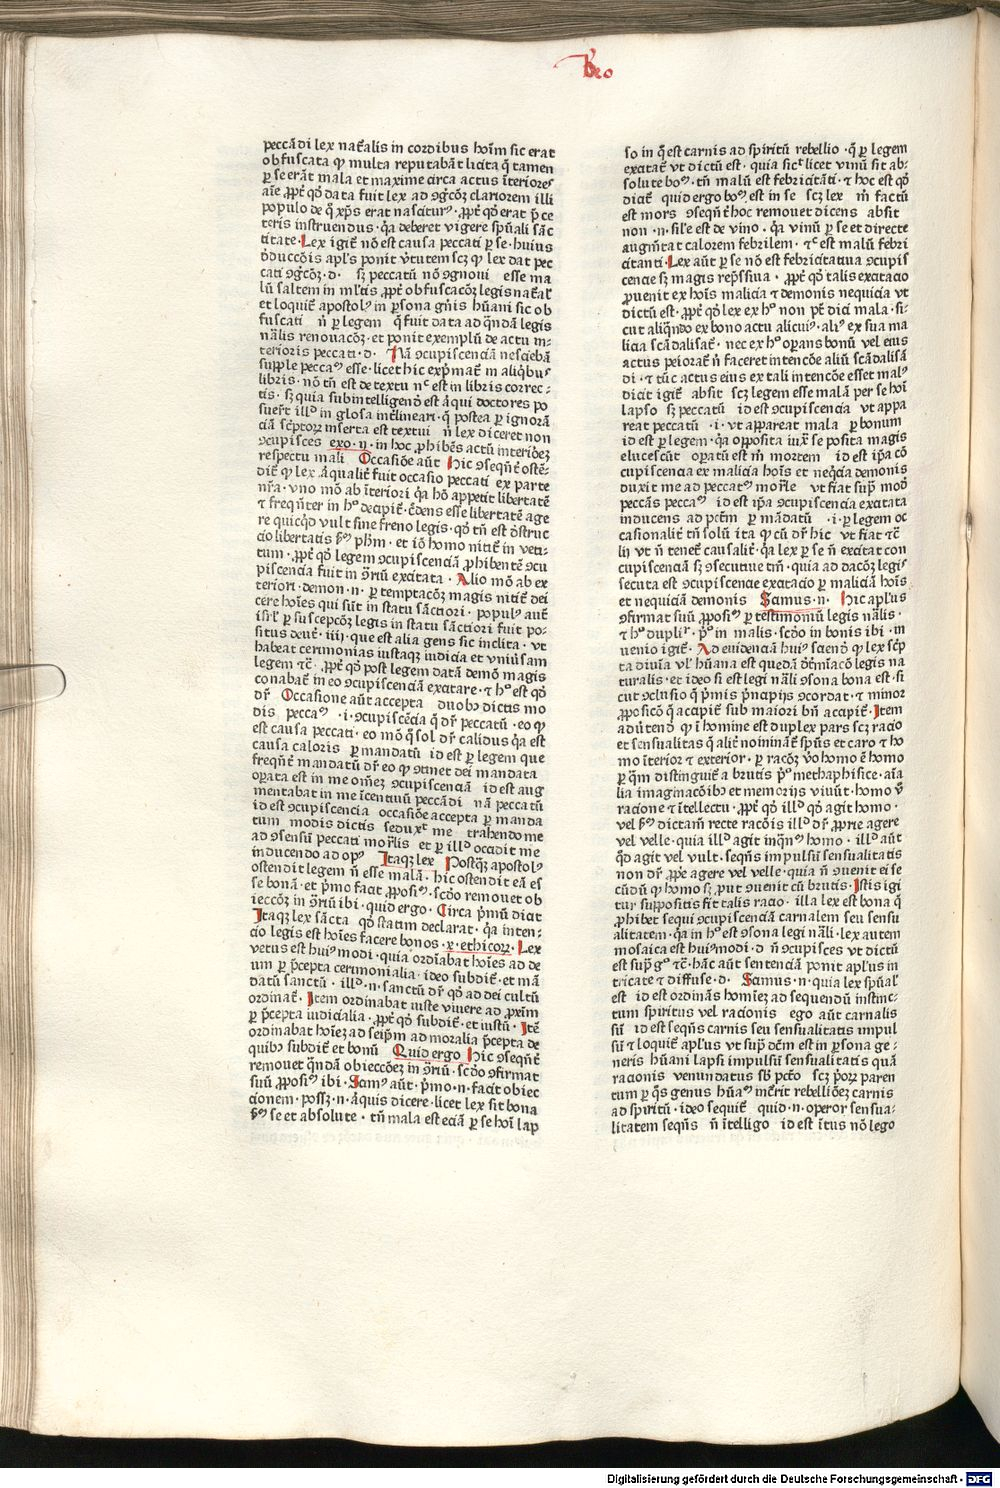 Ro
peccādi lex nať̄alis in cordibus hoīm sic erat
obfuscata ꝙ multa reputabāt licita q̄ tamen
ꝑ se erāt mala et maxime circa actus īteriores
aīe ꝓpť qď data fuit lex ad ꝯgcōꝫ clariorem illi
populo de q̄ xp̄s erat nasciturꝰ ꝓpť qď erat p̄ ce
teris instruendus · q̄a deberet vigere sp̄uali sāc
titate · Lex igiť nō est causa peccati ꝑ se · huius
ꝓduccōis apl̄s ponit v̄tutem scꝫ ꝙ lex dat pec
cati ꝯgcōꝫ · d · sꝫ peccatū nō ꝯgnoui esse ma
lū saltem in ml̄tis ꝓpť obfuscacōꝫ legis nať̄al̄
et loquiť apostolꝰ in ꝑsona gn̄is hūani sic ob
fuscati n̄ ꝑ legem q̄ fuit data ad q̄ndā legis
nālis renouacōꝫ · et ponit exemplū de actu in⸗
terioris peccati · d · Nā ꝯcupiscenciā nesciebā
supple peccaᵐ esse · licet hic exp̄mať in aliqͥbus
libris · nō tn̄ est de textu nᶜ est in libris correc⸗
tis · sꝫ quia subintelligendᵒ est āqui doctores po
suer̄t illᵈ in glosa int̄lineari · q̄ postea ꝑ ignorā
ciā sc̄ptorꝝ inserta est textui n̄ lex diceret non
ꝯcupisces exo · ij · in hoc ꝓhibēs actū interiōꝫ
respectu mali Occasiōe aūt Hic ꝯseqn̄ť ostē⸗
diť ꝙ lex āqualiť fuit occasio peccati ex parte
nr̄a · vno mō ab īteriori q̄a hō appetit libertatē
⁊ freqn̄ter in hᵒ decipiť · c̄dens esse libertatē age
re quicqͥd vult sine freno legis · qď tn̄ est ꝺstruc
cio libertatis ẜm phm̄ · et iō homo nitiť in veti⸗
tum · ꝓpť qď legem ꝯcupiscenciā ꝓhibentē ꝯcu
piscencia fuit in ꝯr̄iū excitata · Alio mō ab ex
teriori · demon · n · ꝑ temptacōꝫ magis nitiť dei
cere hoīes qui sūt in statu sāctiori · populꝰ aūt
isr̄l ꝑ suscepcōꝫ legis in statu sāctiori fuit po⸗
situs deuť · iiij · que est alia gens sic inclita · vt
habeat cerimonias iustaqꝫ iudicia et vniūsam
legem ⁊c̄ · ꝓpť qď post legem datā demō magis
conabať in eo ꝯcupiscenciā excitare · ⁊ hᵒ est qď
dr̄ Occasione aūt accepta duobꝰ dictis mo
dis peccaᵐ · i · ꝯcupiscēcia q̄ dr̄ peccatū · eo ꝙ
est causa peccati · eo mō q̄ sol dr̄ calidus q̄a est
causa caloris ꝑ mandatū id est ꝑ legem que
freqn̄ť mandatū dr̄ eo ꝙ ꝯtinet dei mandata
oꝑata est in me om̄eꝫ ꝯcupiscenciā id est aug
mentabat in me īcentiuū peccādi nā peccatū
id est ꝯcupiscencia occasiōe accepta ꝑ manda
tum modis dictis seduxᵗ me trahendo me
ad ꝯsensū peccati mor̄lis et ꝑ illᵈ occidit me
inducendo ad opꝰ Itaqꝫ lex Postqͣ apostolꝰ
ostendit legem n̄ esse malā · hic ostendit eā es
se bonā · et p̄mo facit ꝓposiᵐ · scd̄o remouet ob
ieccōꝫ in ꝯr̄iū ibi · quid ergo · Circa p̄mū dicit
Itaqꝫ lex sācta qď statim declarat · q̄a inten⸗
cio legis est hoīes facere bonos · x · ethicorꝝ · Lex
vetus est huiꝰmodi · quia ordīabat hoīes ad de
um ꝑ p̄cepta cerimonialia · ideo subdiť · et mā
datū sanctū · illᵈ · n · sanctū dr̄ qď ad dei cultū
ordinať · Item ordinabat iuste viuere ad ꝓxim̄
ꝑ p̄cepta iudicialia · ꝓpť qď subdiť · et iustū · Itē
ordinabat hoīeꝫ ad seip̄m ad moralia p̄cepta de
quibꝰ subdiť et bonū Quid ergo Hic ꝯseqn̄ť
remouet q̄ndā obieccōeꝫ in ꝯr̄iū · scd̄o ꝯfirmat
suū ꝓposiᵐ ibi · Scimꝰ aūt · p̄mo · n · facit obiec
cionem · possꝫ · n · āquis dicere · licet lex sit bona
ẜm se et absolute · tn̄ mala est eciā ꝑ se hoī lap
so in q̄ est carnis ad spiritū rebellio · q̄ ꝑ legem
excitať vt dictū est · quia sicᵗ licet vinū sit ab⸗
solute boᵐ · tn̄ malū est febricitāti · ⁊ hoc est qď
diciť quid ergo boᵐ est in se scꝫ lex m̄ factū
est mors ꝯseqn̄ť hoc remouet dicens absit
non · n · sil̄e est de vino · q̄a vinū ꝑ se et directe
augm̄tat calorem febrilem · ⁊ᶜ est malū febri
citanti · Lex aūt ꝑ se nō est febricitatiua ꝯcupis
cencie sꝫ magis rep̄ssiua · ꝓpť qď talis excitacio
ꝓuenit ex hoīs malicia ⁊ demonis nequicia vt
dictū est · ꝓpť qď lex ex hᵒ non pᵗ dici mala · si⸗
cut aliqn̄do ex bono actu alicuiꝰ · aliꝰ ex sua ma
licia scādalisať · nec ex hᵒ oꝑans bonū vel eius
actus peiorať n̄ faceret intencōe aliū scādalisā
di · ⁊ tūc actus eius ex tali intencōe esset malꝰ
dicit igiť absit scꝫ legem esse malā per se hoī
lapso sꝫ peccatū id est ꝯcupiscencia vt appa
reat peccatū · i · vt appareat mala ꝑ bonum
id est ꝑ legem · q̄a opposita iuxͣ se posita magis
elucescūt oꝑatū est m̄ mortem id est ip̄a cō
cupiscencia ex malicia hoīs et neqͥcia demonis
duxit me ad peccatᵐ mor̄le vt fiat supͣ modᵒ
peccās peccaᵐ id est ip̄a ꝯcupiscencia excitata
inducens ad pctm̄ ꝑ mādatū · i · ꝑ legem oc
casionaliť tn̄ solū ita ꝙ cū dr̄ hic vt fiat ⁊c̄
lij vt n̄ teneť causaliť · q̄a lex ꝑ se n̄ excitat con
cupiscenciā sꝫ ꝯsecutiue tm̄ · quia ad dacōꝫ legiˢ
secuta est ꝯcupiscencie excitacio ꝑ maliciā hoīs
et nequiciā demonis Scimus · n · Hic apl̄us
ꝯfirmat suū ꝓposiᵐ ꝑ testimoniū legis nālis ·
⁊ hᵒ dupliʳ · pͦ in malis · scd̄o in bonis ibi · in
uenio igiť · Ad euidenciā huiꝰ sciendᵒ ꝙ lex sc̄p
ta diuīa vl̓ hūana est quedā ꝺt̄mīacō legis na
turalis · et ideo si est legi nāli ꝯsona bona est · si
cut ꝯclusio q̄ p̄mis p̄ncipijs ꝯcordat · ⁊ minor
ꝓposicō q̄ accipiť sub maiori bn̄ accipiť · Item
aduťendᵒ ꝙ ī homine est duplex pars scꝫ racio
et sensualitas q̄ aliť nomināť sp̄us et caro ⁊ ho
mo īterior ⁊ exterior · ꝑ racōꝫ v̄o homo ē homo
ꝑ q̄m distinguiť a brutis pͦ methaphisice · aīa
lia imaginacōibꝰ et memorijs viuūt · homo v̄
racione ⁊ ītellectu · ꝓpť qď illᵈ qď agit homo ·
vel ẜm dictam̄ recte racōis illᵈ dr̄ ꝓprie agere
vel velle · quia illᵈ agit inqͣm homo · illᵈ aūt
q̄d agit vel vult · seqn̄s impulsū sensualitatis
non dr̄ ꝓpe agere vel velle · quia n̄ ꝯuenit ei se
cūdū ꝙ homo sꝫ ꝓut ꝯuenit cū brutis · Istis igi
tur suppositis fit talis racio · illa lex est bona q̄
ꝓhibet sequi ꝯcupiscenciā carnalem seu sensu
alitatem · q̄a in hᵒ est ꝯsona legi nāli · lex autem
mosaica est huiꝰmodi · d · n̄ ꝯcupisces vt dictū
est supͣ gᵒ ⁊c̄ · hāc aūt sentenciā ponit apl̄us in
tricate ⁊ diffuse · d · Scimus · n · quia lex sp̄ual̓
est id est ordinās homīeꝫ ad sequendū instinc⸗
tum spiritus vel racionis ego aūt carnalis
sū id est seqn̄s carnis seu sensualitatis impul
sū ⁊ loquiť apl̄us vt supͣ dc̄m est in ꝑsona ge⸗
neris hūani lapsi impulsū sensualitatis quā
racionis venundatus sb̄ pctō scꝫ p̄orꝝ paren
tum ꝑ qͦs genus hūaᵐ īcurrit rebelliōeꝫ carnis
ad spiritū · ideo sequiť quid · n · operor sensua⸗
litatem seqn̄s n̄ ītelligo id est ītus nō lego
Digitalisierung gefördert durch die Deutsche Forschungsgemeinschaft - DFG